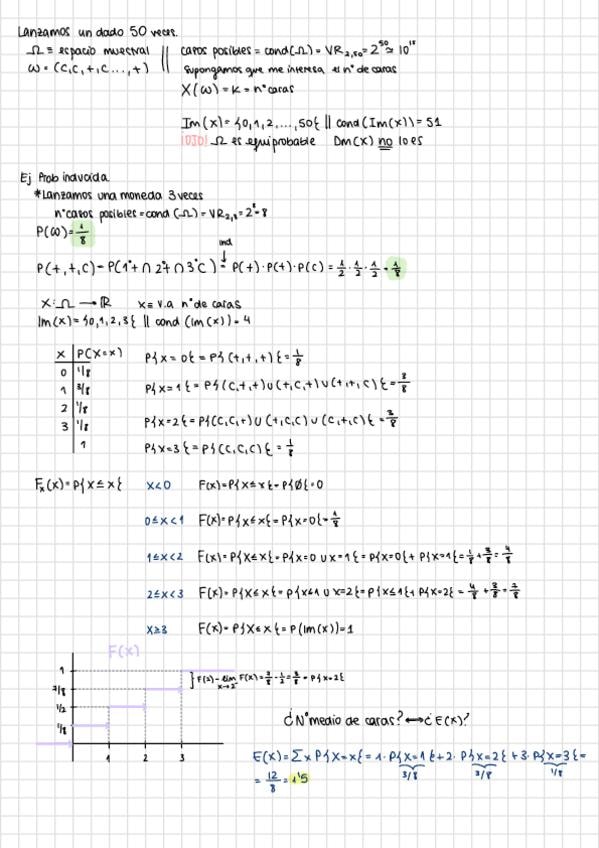 Lanzamos un dado 50 veces.
Ω ≡ espacio muestral || casos posibles = cond(Ω) = VR₂,₅₀ = 2⁵⁰ ≃ 10¹⁵
ω = (c,c,+,c...,+) || supongamos que me interesa el nº de caras
X(ω) = K = nº caras
Im(x) = {0,1,2,...,50{ || cond(Im(x)) = 51
¡OJO! Ω es equiprobable Dm(x) no lo es
Ej Prob inducida
*Lanzamos una moneda 3 veces
nº casos posibles = cond(Ω) = VR₂,₃ = 2³ = 8
P(ω) = 1/8
ind
P(+,+,c) = P(1º+ ∩ 2º+ ∩ 3ºc) = P(+)·P(+)·P(c) = 1/2 · 1/2 · 1/2 = 1/8
X: Ω → ℝ x ≡ v.a nº de caras
Im(x) = {0,1,2,3{ || cond(Im(x)) = 4
x | P(X=x)
0 | 1/8
1 | 3/8
2 | 1/8
3 | 1/8
1
P{x=0{ = P{(+,+,+){ = 1/8
P{x=1{ = P{(c,+,+)∪(+,c,+)∪(+,+,c){ = 3/8
P{x=2{ = P{(c,c,+)∪(+,c,c)∪(c,+,c){ = 3/8
P{x=3{ = P{(c,c,c){ = 1/8
Fₓ(x) = P{x≤x{ x<0 F(x) = P{x≤x{ = P{∅{ = 0
0≤x<1 F(x) = P{x≤x{ = P{x=0{ = 1/8
1≤x<2 F(x) = P{x≤x{ = P{x=0 ∪ x=1{ = P{x=0{ + P{x=1{ = 1/8 + 3/8 = 4/8
2≤x<3 F(x) = P{x≤x{ = P{x≤1 ∪ x=2{ = P{x≤1{ + P{x=2{ = 4/8 + 3/8 = 7/8
x≥3 F(x) = P{x≤x{ = P(Im(x)) = 1
F(x)
1
7/8
1/2
1/8
1 2 3
} F(2) - lim x→2⁻ F(x) = 7/8 - 1/2 = 3/8 = P{x=2{
¿Nº medio de caras? ↔ ¿E(x)?
E(x) = Σ x P{x=x{ = 1·P{x=1{ + 2·P{x=2{ + 3·P{x=3{ =
3/8 3/8 1/8
= 12/8 = 1'5